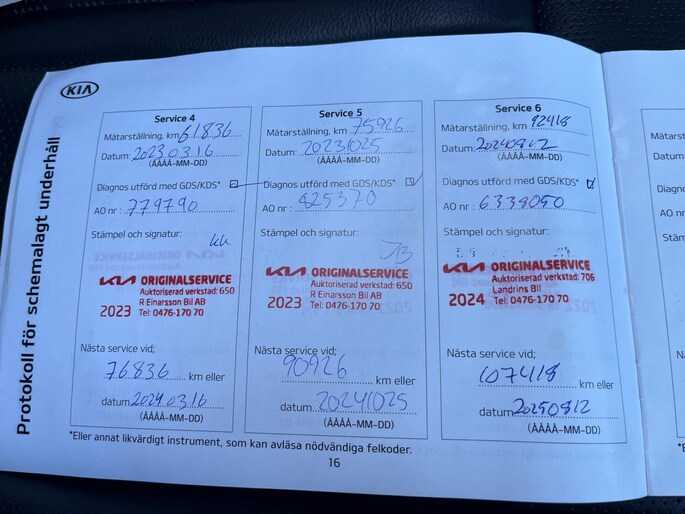 KIA
Protokoll för schemalagt underhåll
Service 4
Mätarställning, km 61836
Datum: 20230316
(ÅÅÅÅ-MM-DD)
Diagnos utförd med GDS/KDS*
AO nr: 779790
Stämpel och signatur:
KIA ORIGINALSERVICE
Auktoriserad verkstad: 650
R Einarsson Bil AB
2023 Tel: 0476-170 70
Nästa service vid;
76836 km eller
datum 20240316
(ÅÅÅÅ-MM-DD)
Service 5
Mätarställning, km 75926
Datum: 20231025
(ÅÅÅÅ-MM-DD)
Diagnos utförd med GDS/KDS*
AO nr: 825370
Stämpel och signatur:
KIA ORIGINALSERVICE
Auktoriserad verkstad: 650
R Einarsson Bil AB
2023 Tel: 0476-170 70
Nästa service vid;
90926 km eller
datum 20241025
(ÅÅÅÅ-MM-DD)
Service 6
Mätarställning, km 92418
Datum: 20240812
(ÅÅÅÅ-MM-DD)
Diagnos utförd med GDS/KDS*
AO nr: 6339050
Stämpel och signatur:
KIA ORIGINALSERVICE
Auktoriserad verkstad: 706
Landrins Bil
2024 Tel: 0476-170 70
Nästa service vid;
107418 km eller
datum 20250812
(ÅÅÅÅ-MM-DD)
*Eller annat likvärdigt instrument, som kan avläsa nödvändiga felkoder.
16
Datum:
AO nr: